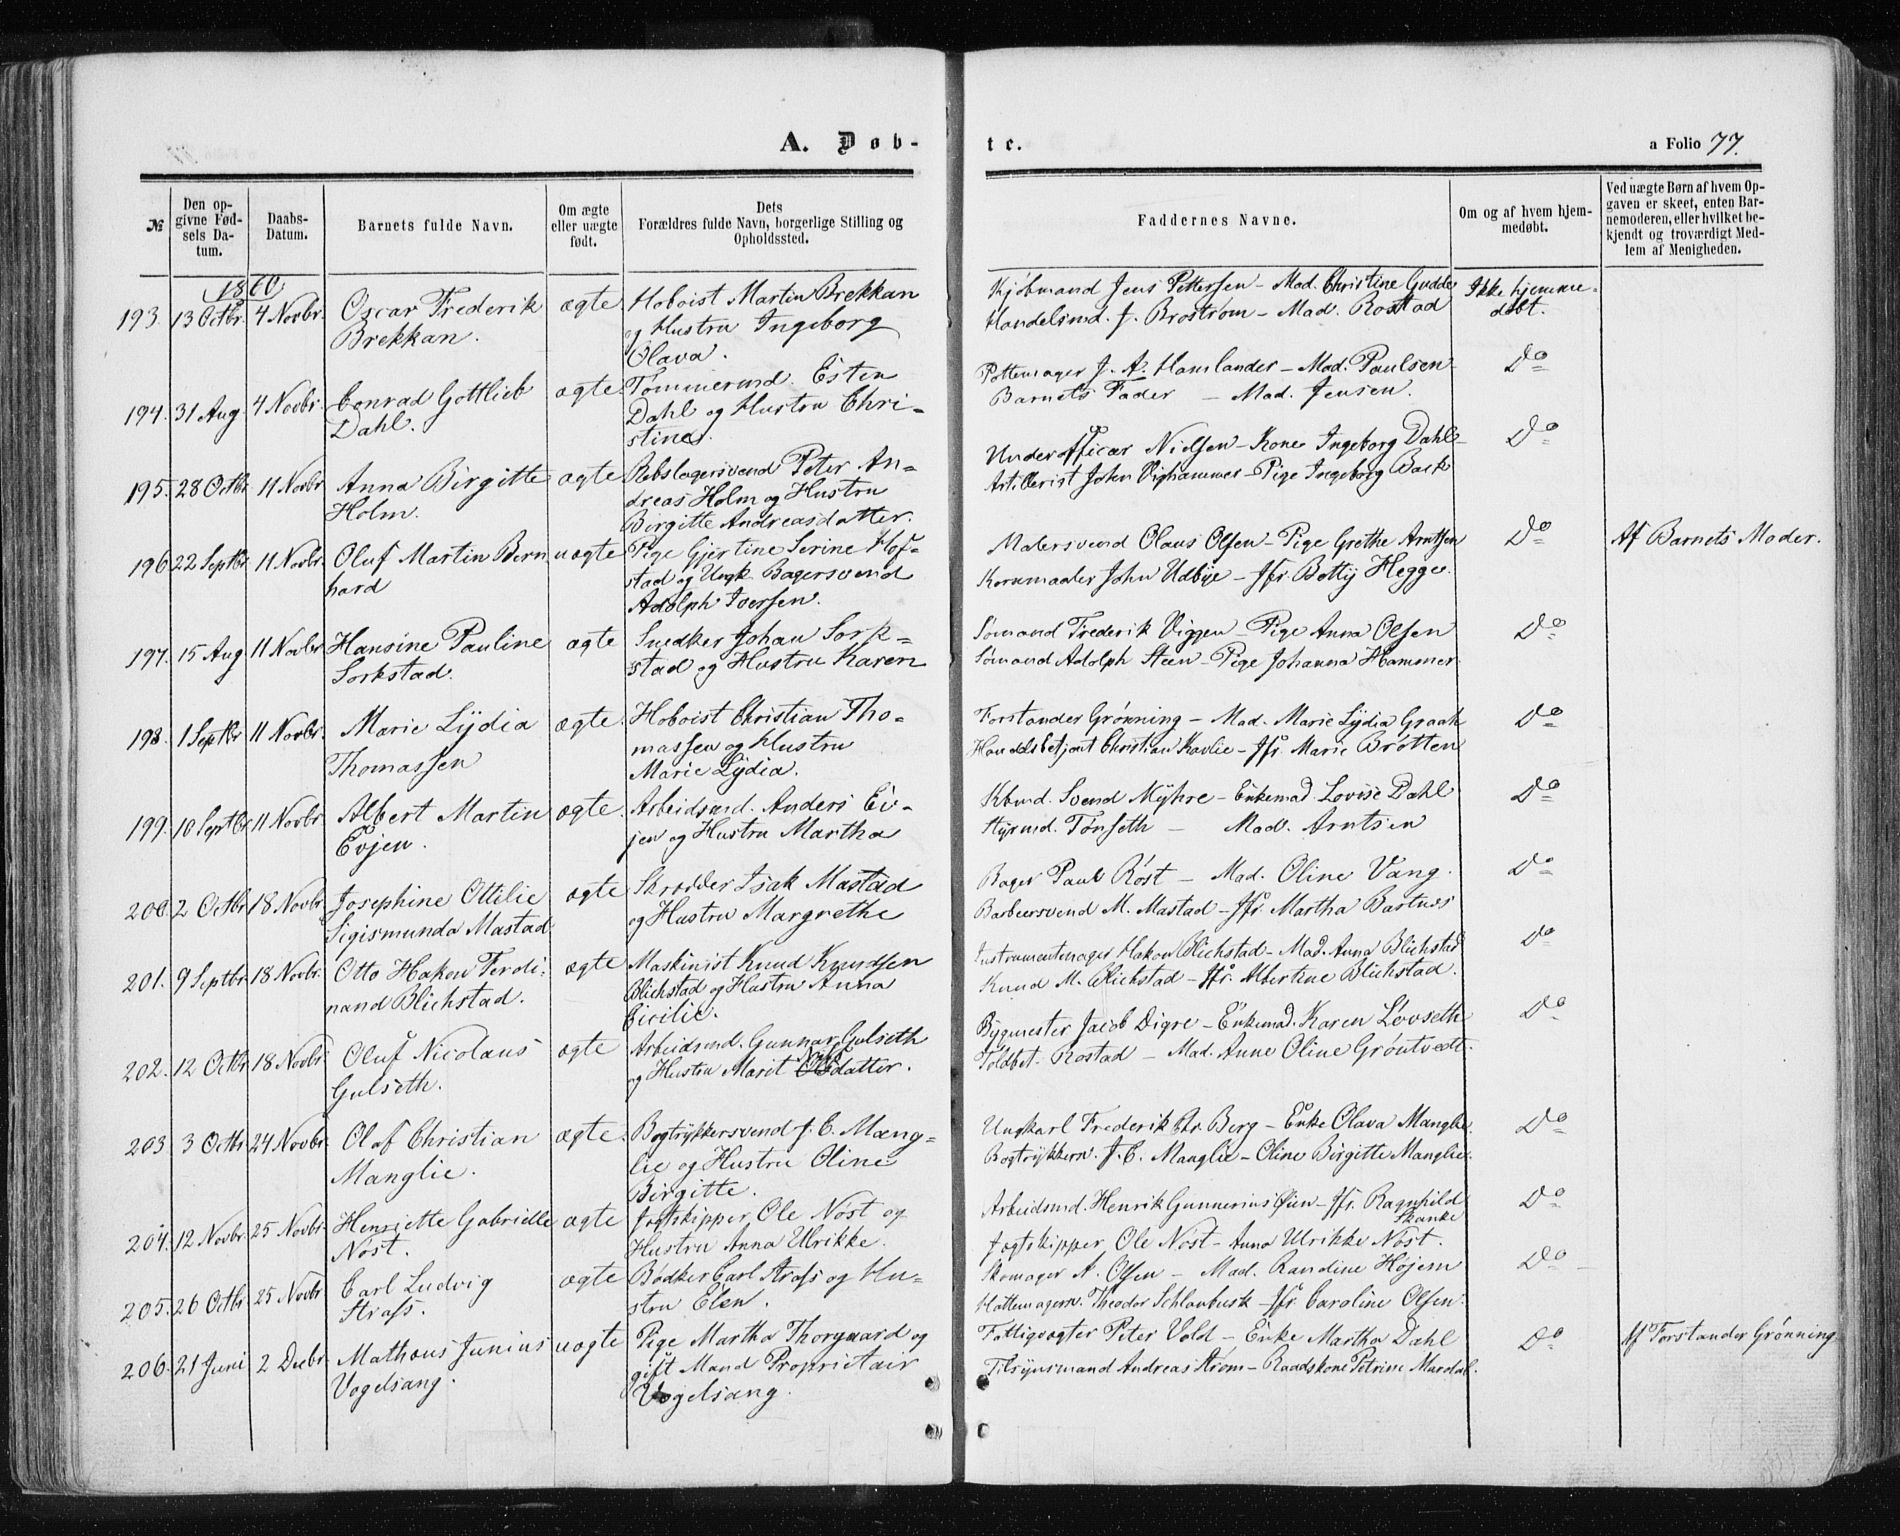 A. Døb-
te.
a Folio 77.
№
Den op-
givne Fød-
sels Da-
tum.
Daabs-
Datum.
Barnets fulde Navn.
Om ægte
eller uægte
født.
Dets
Forældres fulde Navn, borgerlige Stilling og
Opholdssted.
Faddernes Navne.
Om og af hvem hjem-
medøbt.
Ved uægte Børn af hvem Op-
gaven er skeet, enten Bar-
nemoderen, eller hvilket be-
kjendt og troværdigt Med-
lem af Menigheden.
1860
193. 13 Octbr. 4 Novbr. Oscar Frederik ægte Hoboist Martin Brekkan Kjøbmand Jens Pettersen – Mad. Christine Gudde Ikke hjemme-
Brekkan. og Hustru Ingeborg Handelsmd. J. Brostrøm – Mad. Rostad døbt.
Olava.
194. 31 Aug 4 Novbr. Conrad Gottlieb ægte Tømmermd. Esten Pottemager J. A. Hamlander – Mad. Paulsen Do
Dahl. Dahl og Hustru Chri- Barnets Fader – Mad. Jensen.
stine.
195. 28 Octbr 11 Novbr Anna Birgitte ægte Rebslagersvend Peter An- Underofficer Nielsen – Kone Ingeborg Dahl Do
Holm. dreas Holm og Hustru Artillerist John Vighammer – Pige Ingeborg Bask
Birgitte Andreasdatter.
196. 22 Septbr. 11 Novbr. Oluf Martin Bern uægte Pige Gjertine Serine Hof- Malersvend Olaus Olsen – Pige Grethe Arntsen Do Af Barnets Moder.
hard stad og Ungk. Bagersvend Kornmaaler John Udbye – Jfr. Betty Hegge.
Adolph Iversen.
197. 15 Aug 11 Novbr Hansine Pauline ægte Snedker Johan Sork- Sømand Frederik Viggen – Pige Anna Olsen Do
Sorkstad. stad og Hustru Karen Sømand Adolph Steen – Pige Johanna Hammer.
198. 1 Septbr 11 Novbr. Marie Lydia ægte. Hoboist Christian Tho- Forstander Grønning – Mad. Marie Lydia Graah Do
Thomassen massen og Hustru Handelsbetjent Christian Kavlie – Jfr. Marie Brøtten
Marie Lydia.
199. 10 Septbr. 11 Novbr. Albert Martin ægte. Arbeidsmd. Anders Ev- Kbmd. Svend Myhre – Enkemad. Lovise Dahl Do
Evjen. jen og Hustru Martha Styrmd. Tønseth – Mad. Arntsen
200. 2 Octbr. 18 Novbr. Josephine Ottilie ægte Skrædder Isak Mastad Bager Paul Röst – Mad. Oline Vang. Do
Sigismunda Mastad og Hustru Margrethe Barbeersvend M. Mastad – Jfr. Martha Bastnes
201. 9 Septbr. 18 Novbr. Otto Haken Ferdi- ægte Maskinist Knud Knudsen Instrumentmager Hakon Blichstad – Mad. Anna Blichstad Do
nand Blichstad. Blichstad og Hustru Anna Knud M. Blichstad – Jfr. Albertine Blichstad.
Cicilie.
202. 12 Octbr. 18 Novbr. Oluf Nicolaus ægte Arbeidsmd. Gunnar Gulseth Bygmester Jacob Digre – Enkemad. Karen Løvseth Do
Gulseth. og Hustru Marit datter. Toldbet. Rostad – Mad. Anne Oline Grøntvedt.
203. 3 Octbr. 24 Novbr. Olaf Christian ægte. Bogtrykkersvend J. C. Mang- Ungkarl Frederik Chr. Berg – Enke Olava Manglie. Do
Manglie. lie og Hustru Oline Bogtrykkern. J. C. Manglie – Oline Birgitte Manglie.
Birgitte.
204. 12 Novbr. 25 Novbr. Henriette Gabrielle ægte Jagtskipper Ole Nøst og Arbeidsmd. Henrik Gunnerius Øien – Jfr. Ragnhild Skanke Do
Nøst. Hustru Anna Ulrikke. Jagtskipper Ole Nøst – Anna Ulrikke Nøst.
205. 26 Octbr. 25 Novbr Carl Ludvig ægte Bødker Carl Strøss og Hu- Skomager A. Olsen – Mad. Randine Højem Do
Strøss. stru Elen. Hattemagern. Theodor Schlaubusk – Jfr. Caroline Olsen.
206. 21 Juni 2 Decbr. Mathæus Junius uægte Pige Martha Thorgaard og Fattigvogter Peter Vold – Enke Martha Dahl Do Af Forstander Grønning
Vogelsang. gift Mand Proprietair Tilsynsmand Andreas Strøm – Raadskone Petrine Mardal.
Vogelsang.